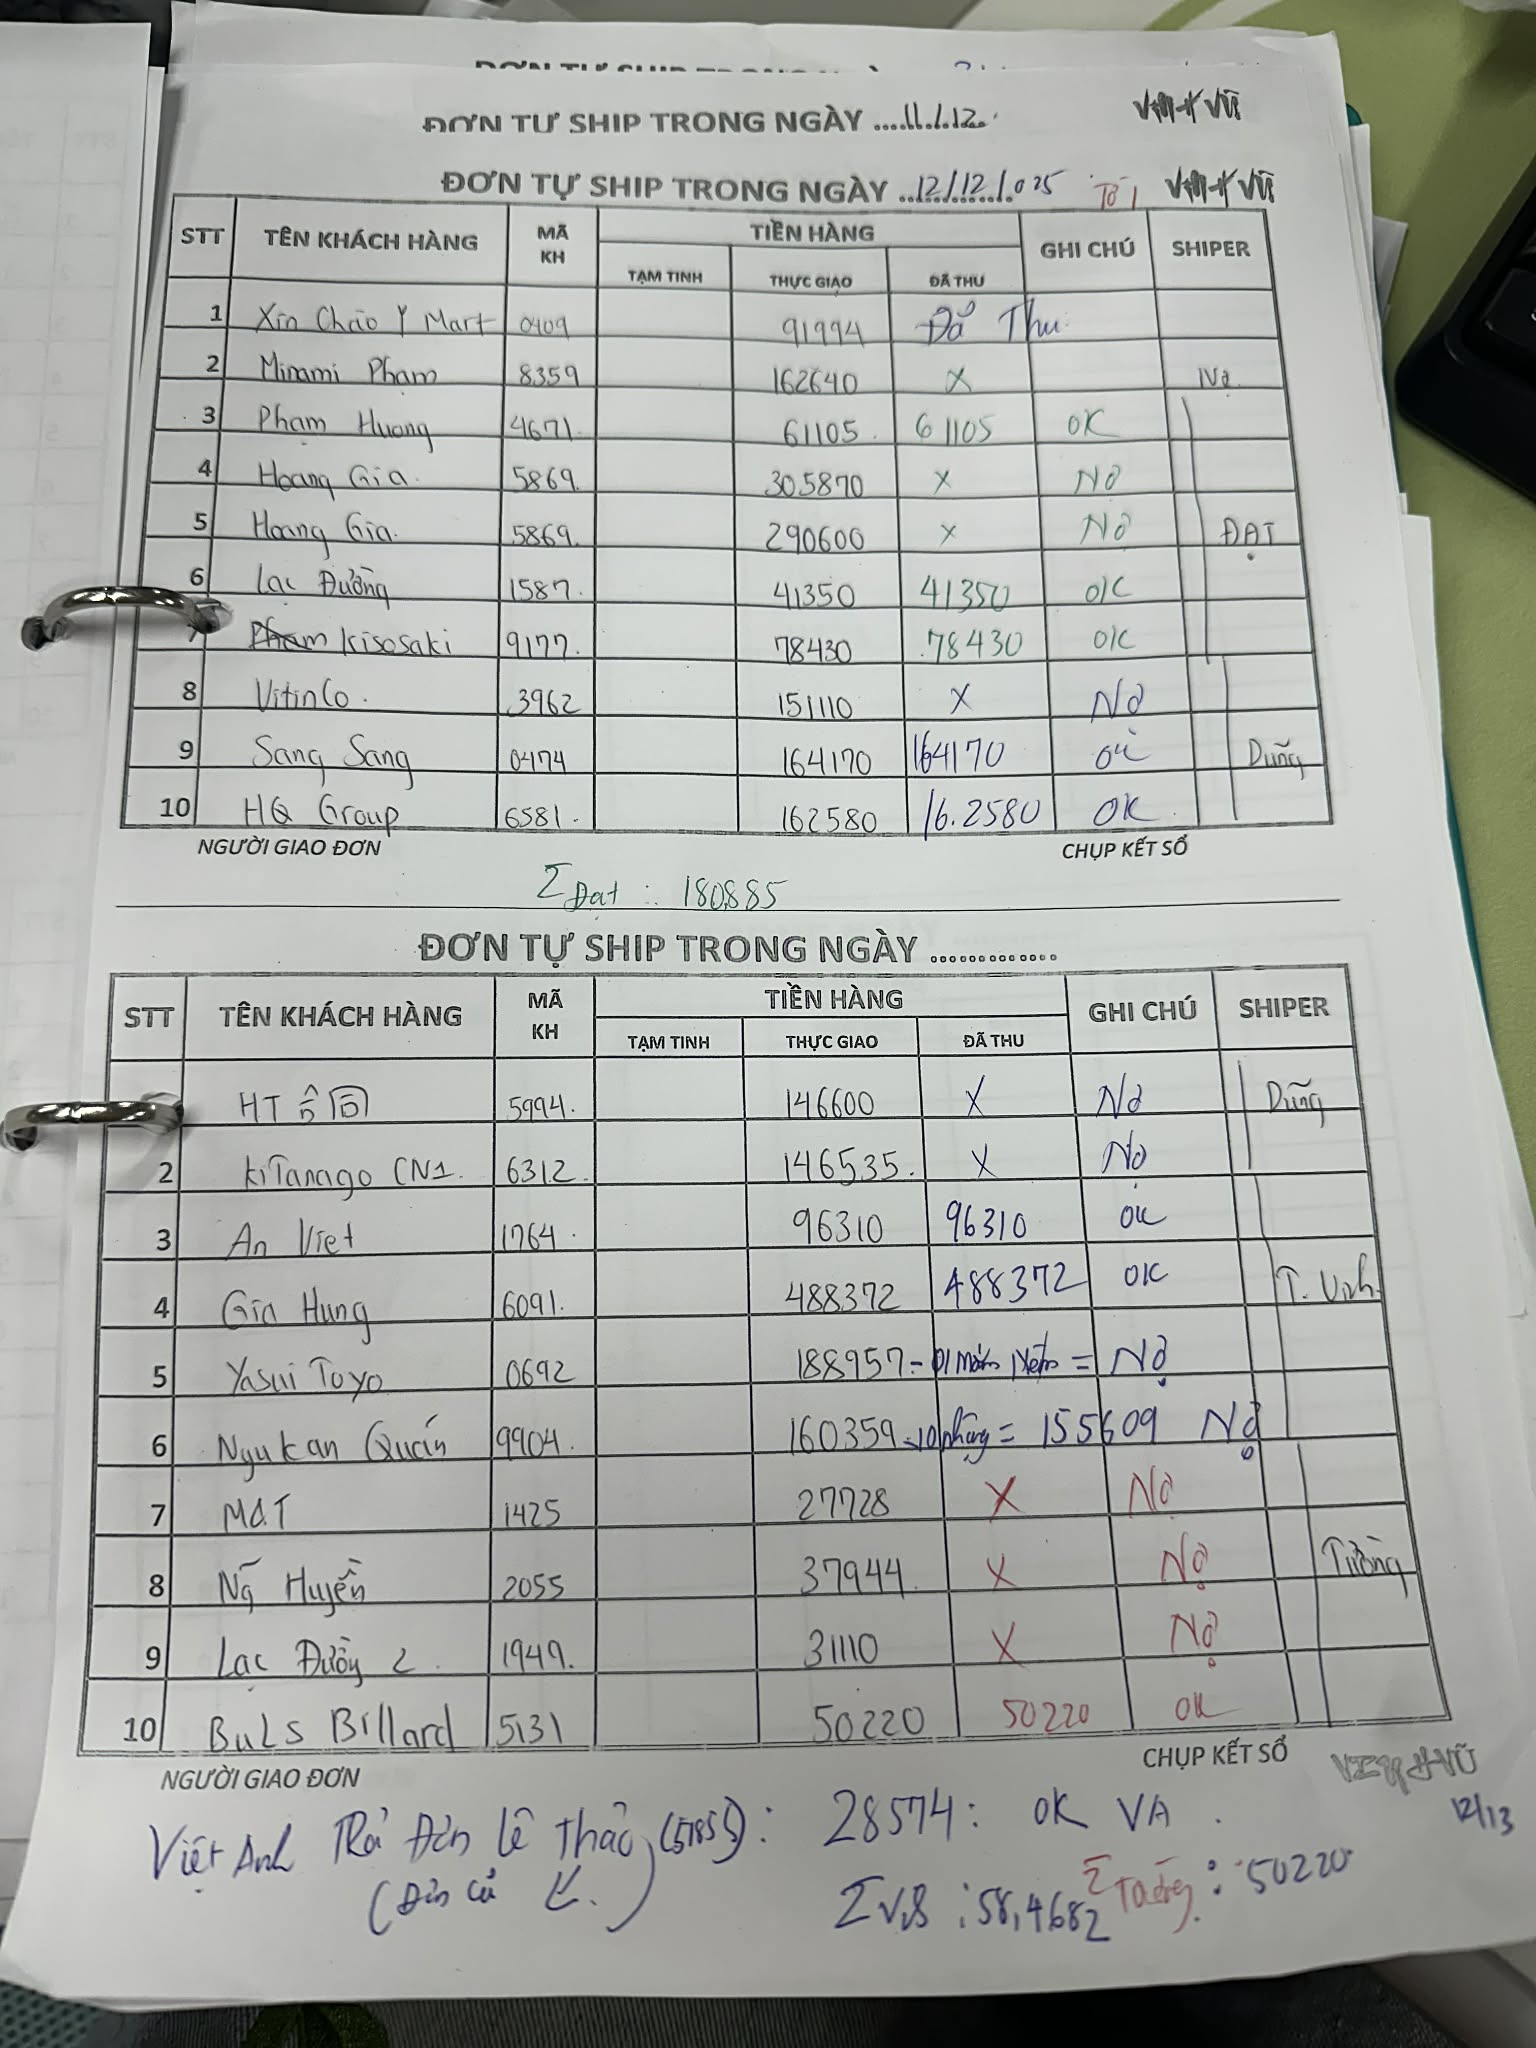 ĐƠN TỰ SHIP TRONG NGÀY ...11/12
ĐƠN TỰ SHIP TRONG NGÀY ..12/12/025 Tờ 1
STT TÊN KHÁCH HÀNG MÃ KH TIỀN HÀNG GHI CHÚ SHIPER
TẠM TINH THỰC GIAO ĐÃ THU
1 Xin Chào Y Mart 0409 91994 Đã Thu
2 Minami Phạm 8359 162640 X Nợ
3 Phạm Hương 4671. 61105. 61105 OK
4 Hoang Gia. 5869. 305870 X Nợ
5 Hoang Gia. 5869. 290600 X Nợ ĐẠT
6 Lạc Đường 1587. 41350 41350 OK
7 Kisosaki 9177. 78430 78430 OK
8 VitinCo. 3962 151110 X Nợ
9 Sang Sang 0474 164170 164170 OK Dũng
10 HQ Group 6581. 162580 16.2580 OK
NGƯỜI GIAO ĐƠN CHỤP KẾT SỔ
Σ Đạt : 180.885
ĐƠN TỰ SHIP TRONG NGÀY ..............
STT TÊN KHÁCH HÀNG MÃ KH TIỀN HÀNG GHI CHÚ SHIPER
TẠM TINH THỰC GIAO ĐÃ THU
HT 5994. 146600 X Nợ Dũng
2 KiTanago CN1. 6312. 146535. X Nợ
3 An Viet 1764. 96310 96310 OK
4 Gia Hung 6091. 488372 488372 OK T. Vinh.
5 Yasui Toyo 0692 188957 - 01 = Nợ
6 Ngukan Quán 9904. 160359 - 10 = 155609 Nợ
7 M&T 1425 27728 X Nợ
8 Ngã Huyền 2055 37944 X Nợ Tường
9 Lạc Đường 2. 1949. 31110 X Nợ
10 BuLS Billard 5131 50220 50220 OK
NGƯỜI GIAO ĐƠN CHỤP KẾT SỔ
12/13
Việt Anh Trả Đơn Lê Thảo : 28574: OK VA.
(Đơn cũ
Σ : 58,4682 Σ Tường : 50220